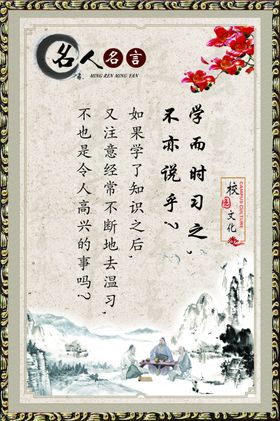 名人名言
MING REN MING YAN
学而时习之，
不亦说乎？
如果学了知识之后，
又注意经常不断地去温习，
不也是令人高兴的事吗？
校园文化
CAMPUS CULTURE